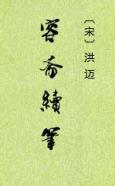 〔宋〕洪迈
容斋續筆